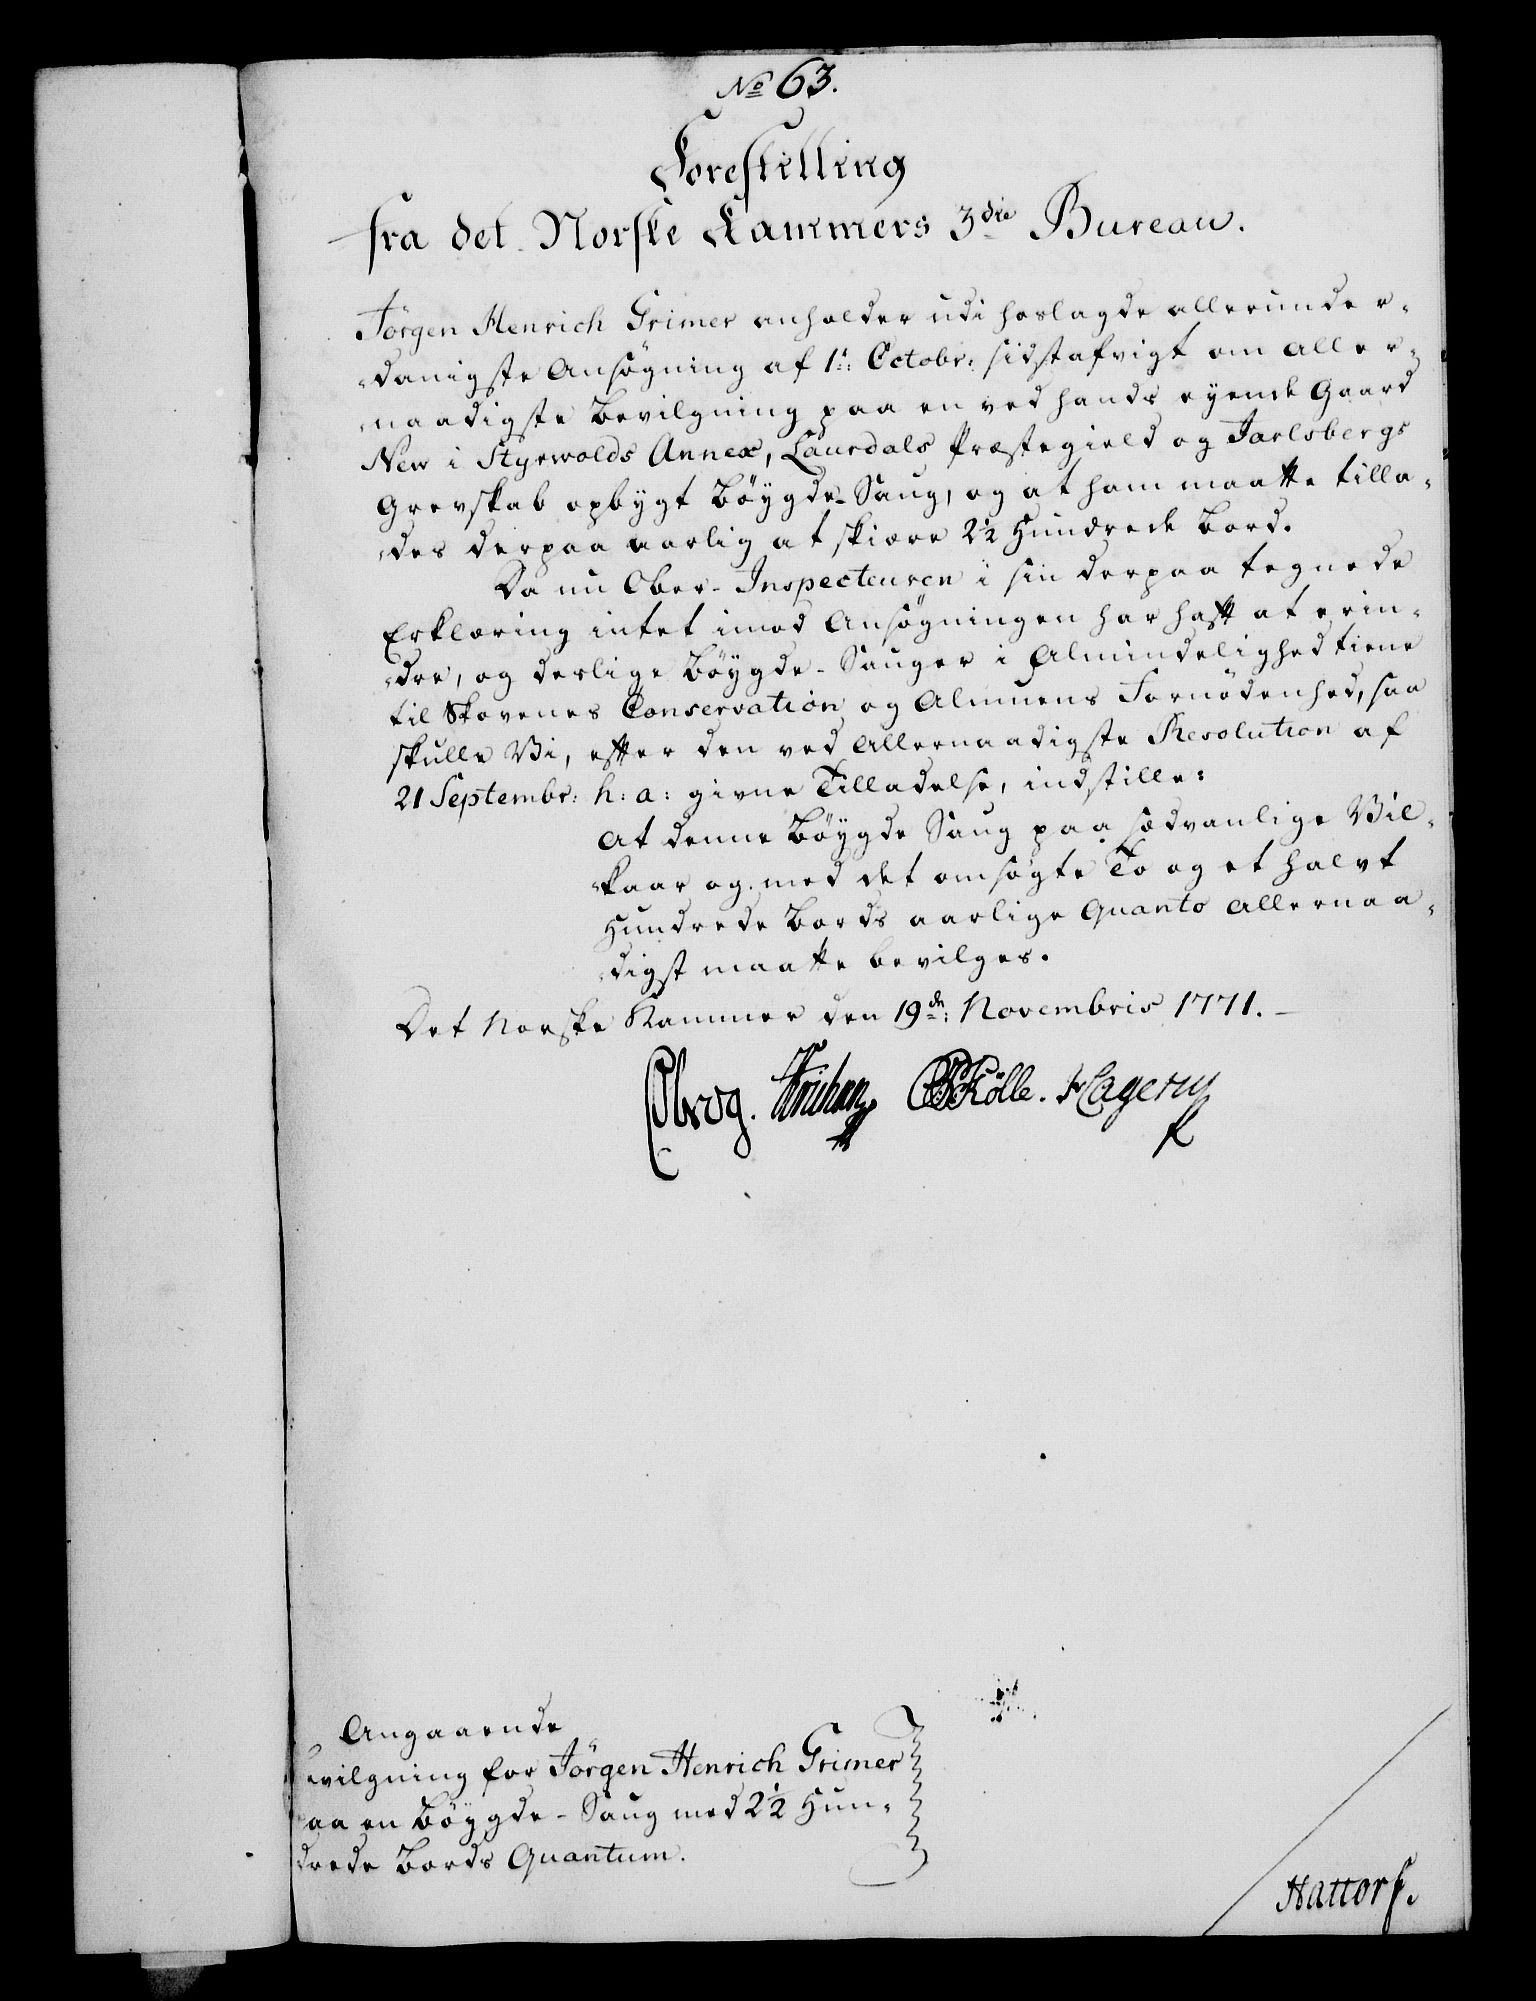 No 63.
Forestilling
fra det Norske Kammers 3die Bureau.
Jörgen Henrich Grimer anholder udi hoslagde allerunder-
danigste Ansøgning af 1te: Octobr: sidstafvigt om aller-
naadigste bevilgning paa en ved hands eyende Gaard
New i Styrwolds Annex, Laurdals Præstegield og Jarlsbergs
Grevskab opbygt böygde-Saug, og at ham maatte tilla-
des derpaa aarlig at skiære 2 1/2 Hundrede bord.
Da nu Ober-Inspecteuren i sin derpaa tegnede
Erklæring intet imod Ansøgningen har haft at erin-
dre, og deslige böygde-Sauger i Almindelighed tiene
til Skovenes Conservation og Almuens Fornödenhed, saa
skulle Vi, efter den ved allernaadigste Resolution af
21 Septembr: h: a: givne Tilladelse, indstille:
At denne böygde Saug paa sædvanlige Vil-
kaar og med det omsøgte To og et halvt
Hundrede bords aarlige Quanto allernaa-
digst maatte bevilges.
Det Norske Kammer den 19de: Novembris 1771.
Kölle. Hagerup
Angaaende
evilgning for Jörgen Henrich Grimer
aa en böygde-Saug med 2 1/2 Hun-
drede bords Quantum.
Hattorf.